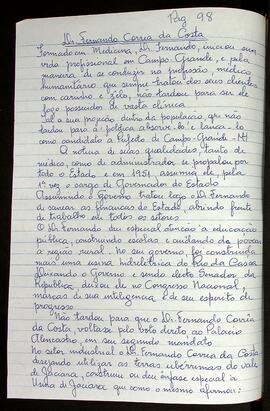 Pág 98
Dr Fernando Corrêa da Costa
Formado em Medicina, Dr Fernando, iniciou sua
vida profissional em Campo Grande, e pela
maneira de se conduzir na profissão, médico
humanitário que sempre tratou dos seus clientes
com carinho e zelo, não tardou para ser ele
logo possuidor de vasta clínica
Tal a sua projeção dentro da população, que não
tardou para a política absorve-lo e lança-lo
como candidato a Prefeito de Campo-Grande - Mt
A notura de suas qualidades, tanto de
médico, como de administrador se propalou por
todo o Estado e em 1951, assumia ele, pela
1ª vez o cargo de Governador do Estado
Assumindo o Governo tratou logo o Dr Fernando
de sanear as finanças do Estado, abrindo frente
de trabalho em todos os setores.
O Dr Fernando deu especial atenção a educação
pública, construindo escolas e cuidando da
e negro rural. No seu governo, foi construída
mais uma usina hidrelétrica do Rio da Casca
Deixando o Governo e sendo eleito Senador da
República, deixou ele no Congresso Nacional,
marcas de sua inteligencia e de seu espirito de
progresso
Não tardou para que o Dr. Fernando Corrêa
da Costa, voltasse pelo voto direto ao Palacio
Alencastro, em seu segundo mandato
No setor, industrial o Dr Fernando Corrêa da Costa
desejando utilizar as terras uberrimas do vale
de Jaciara, construiu ou deu ênfase especial a
Usina de Jaciara que como o mesmo afirmou: